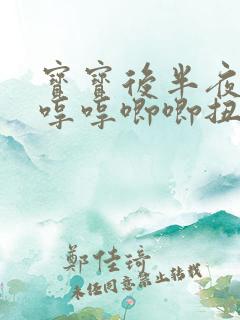 寶寶後半夜
哼哼唧唧扭
鄭佳琦
未經同意禁止轉載